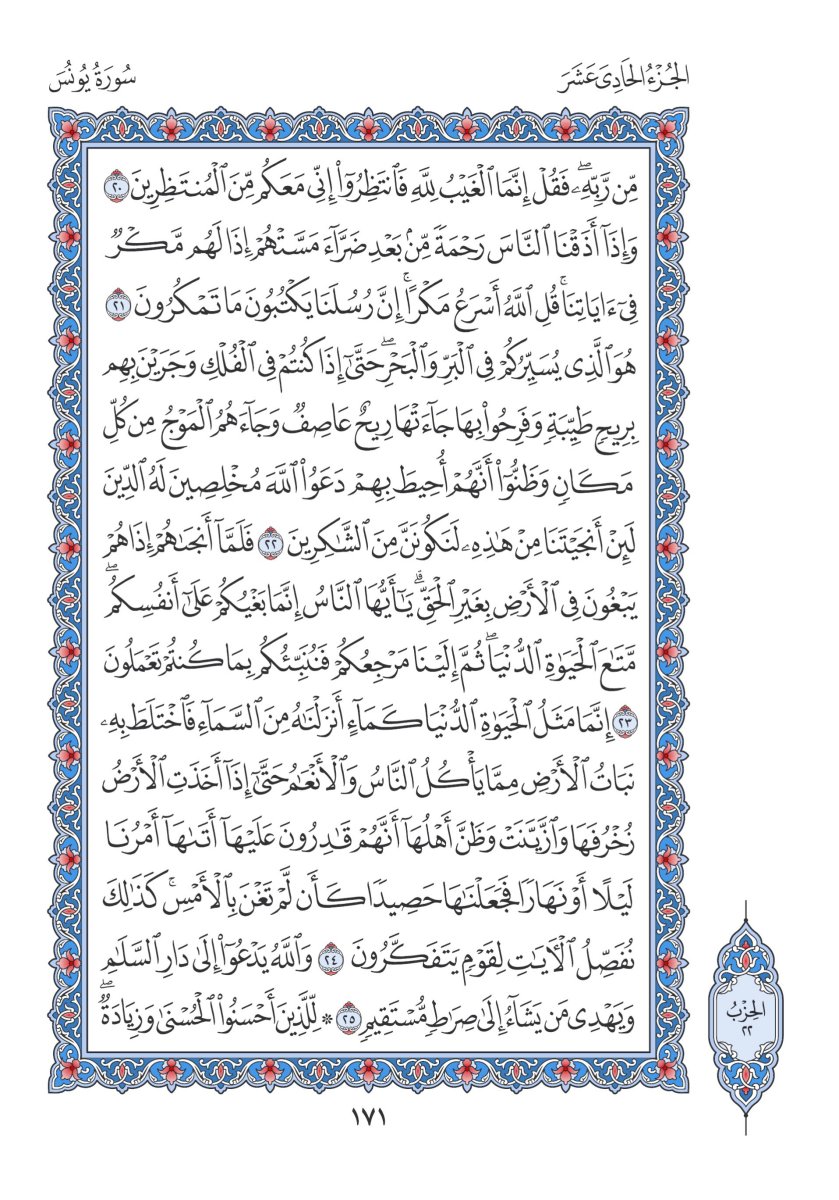 الجُزْءُ الحَادِيَ عَشَرَ
سُورَةُ يُونُسَ
مِّن رَّبِّهِۦۖ فَقُلْ إِنَّمَا ٱلْغَيْبُ لِلَّهِ فَٱنتَظِرُوٓا۟ إِنِّى مَعَكُم مِّنَ ٱلْمُنتَظِرِينَ ٢٠
وَإِذَآ أَذَقْنَا ٱلنَّاسَ رَحْمَةً مِّنۢ بَعْدِ ضَرَّآءَ مَسَّتْهُمْ إِذَا لَهُم مَّكْرٌ
فِىٓ ءَايَاتِنَاۚ قُلِ ٱللَّهُ أَسْرَعُ مَكْرًاۚ إِنَّ رُسُلَنَا يَكْتُبُونَ مَا تَمْكُرُونَ ٢١
هُوَ ٱلَّذِى يُسَيِّرُكُمْ فِى ٱلْبَرِّ وَٱلْبَحْرِۖ حَتَّىٰٓ إِذَا كُنتُمْ فِى ٱلْفُلْكِ وَجَرَيْنَ بِهِم
بِرِيحٍ طَيِّبَةٍ وَفَرِحُوا۟ بِهَا جَآءَتْهَا رِيحٌ عَاصِفٌ وَجَآءَهُمُ ٱلْمَوْجُ مِن كُلِّ
مَكَانٍ وَظَنُّوٓا۟ أَنَّهُمْ أُحِيطَ بِهِمْ دَعَوُا۟ ٱللَّهَ مُخْلِصِينَ لَهُ ٱلدِّينَ
لَئِنْ أَنجَيْتَنَا مِنْ هَٰذِهِۦ لَنَكُونَنَّ مِنَ ٱلشَّٰكِرِينَ ٢٢ فَلَمَّآ أَنجَىٰهُمْ إِذَا هُمْ
يَبْغُونَ فِى ٱلْأَرْضِ بِغَيْرِ ٱلْحَقِّۗ يَٰٓأَيُّهَا ٱلنَّاسُ إِنَّمَا بَغْيُكُمْ عَلَىٰٓ أَنفُسِكُمۖ
مَّتَٰعَ ٱلْحَيَوٰةِ ٱلدُّنْيَاۖ ثُمَّ إِلَيْنَا مَرْجِعُكُمْ فَنُنَبِّئُكُم بِمَا كُنتُمْ تَعْمَلُونَ
٢٣ إِنَّمَا مَثَلُ ٱلْحَيَوٰةِ ٱلدُّنْيَا كَمَآءٍ أَنزَلْنَٰهُ مِنَ ٱلسَّمَآءِ فَٱخْتَلَطَ بِهِۦ
نَبَاتُ ٱلْأَرْضِ مِمَّا يَأْكُلُ ٱلنَّاسُ وَٱلْأَنْعَٰمُ حَتَّىٰٓ إِذَآ أَخَذَتِ ٱلْأَرْضُ
زُخْرُفَهَا وَٱزَّيَّنَتْ وَظَنَّ أَهْلُهَآ أَنَّهُمْ قَٰدِرُونَ عَلَيْهَآ أَتَىٰهَآ أَمْرُنَا
لَيْلًا أَوْ نَهَارًا فَجَعَلْنَٰهَا حَصِيدًا كَأَن لَّمْ تَغْنَ بِٱلْأَمْسِۚ كَذَٰلِكَ
نُفَصِّلُ ٱلْـَٔايَٰتِ لِقَوْمٍ يَتَفَكَّرُونَ ٢٤ وَٱللَّهُ يَدْعُوٓا۟ إِلَىٰ دَارِ ٱلسَّلَٰمِ
وَيَهْدِى مَن يَشَآءُ إِلَىٰ صِرَٰطٍ مُّسْتَقِيمٍ ٢٥ * لِّلَّذِينَ أَحْسَنُوا۟ ٱلْحُسْنَىٰ وَزِيَادَةٌۖ
الحِزْبُ
٢٢
١٧١